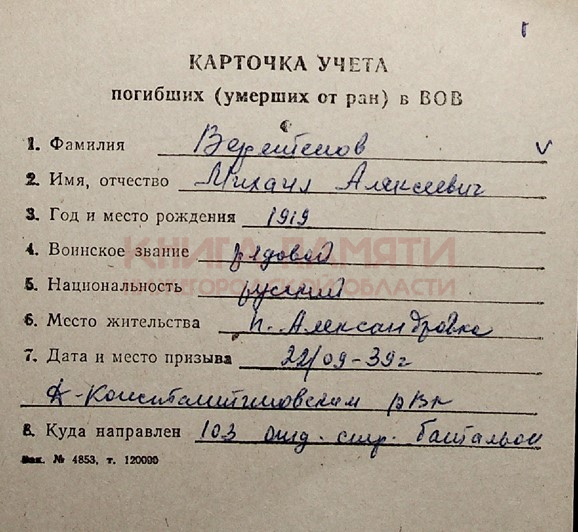 КАРТОЧКА УЧЕТА
погибших (умерших от ран) в ВОВ
1. Фамилия Веретенов
2. Имя, отчество Михаил Алексеевич
3. Год и место рождения 1919
4. Воинское звание рядовой
КНИГА ПАМЯТИ
5. Национальность русский
ОБЛАСТИ
6. Место жительства п. Александровка
7. Дата и место призыва 22/09-39г
Д-Константиновским рвк
8. Куда направлен 103 отд. стр. батальон
Зак. № 4853, т. 120000